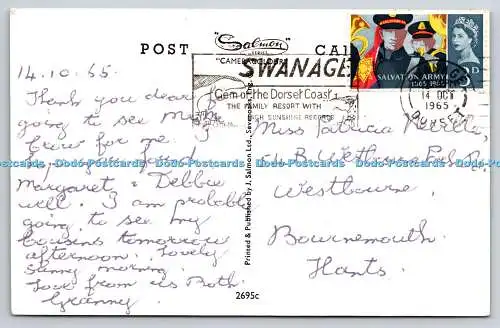 POST CA
"Salmon"
SERIES
"CAMERACOLOUR"
SWANAGE
Gem of the Dorset Coast
THE FAMILY RESORT WITH
HIGH SUNSHINE RECORDS
SALVATION ARMY
1865 1965
D
14 OCT
1965
DORSET
14.10.65.
Thank you dear for
going to see
for me. I
Margaret & Debbie
well. I am probably
going to see my
cousins tomorrow
afternoon. Lovely
sunny morning.
Love from us Both.
Granny.
Miss Patricia
Westbourne,
Bournemouth.
Hants.
Printed & Published by J. Salmon Ltd., Sevenoaks, Eng.
2695c
Dodo Postcards Dodo Postcards Dodo Postcards Dodo Postcards Dodo Postcards